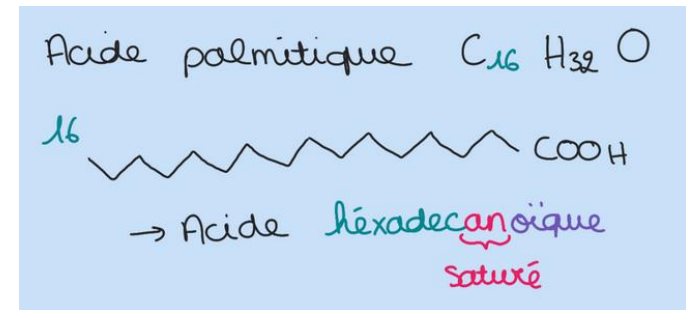 Acide palmitique C16 H32 O
16
COOH
→ Acide héxadecanoïque
saturé